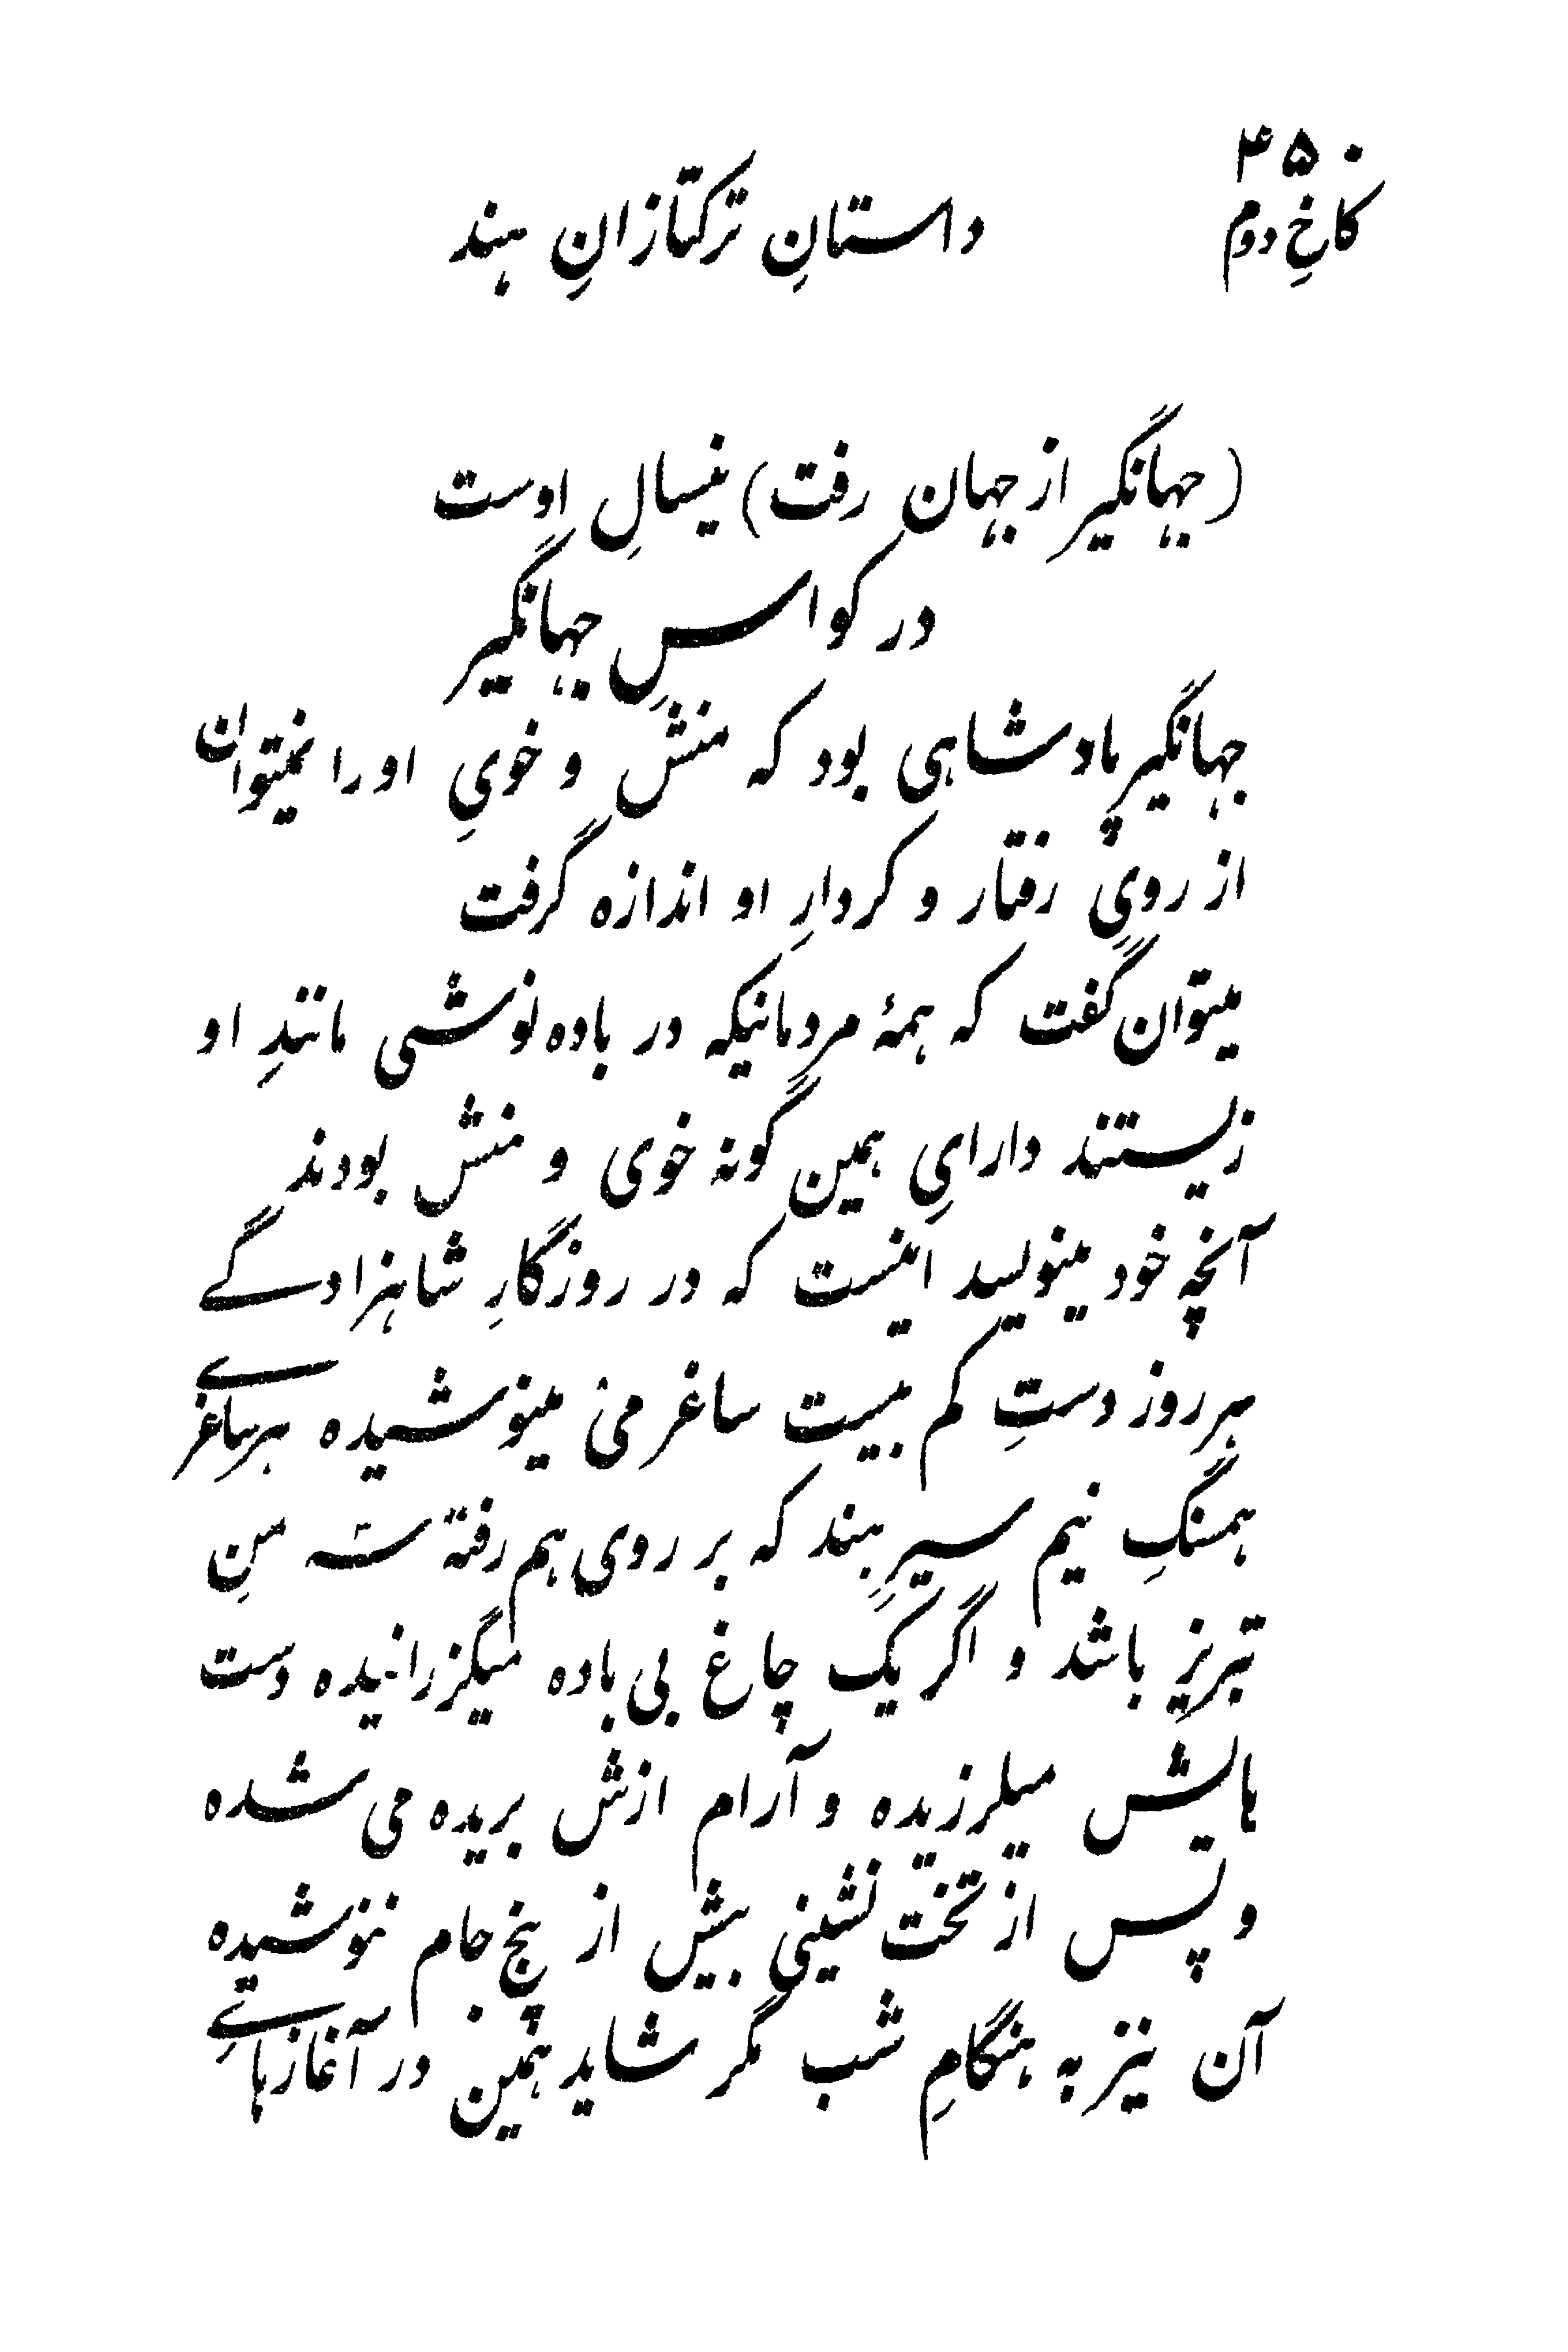 ۴۵۰
کاخِ دوم
داستانِ ترکتازانِ هند
(جهانگیر از جهان رفت) نیسالِ اوست
در کواسِ جهانگیر
جهانگیر پادشاهی بود که منش و خویِ او را نمیتوان
از رویِ رفتار و کردارِ او اندازه گرفت
میتوان گفت که همهٔ مردمانیکه در باده نوشی مانندِ او
زیستند دارایِ همین گونه خوی و منش بودند
آنچه خود مینویسد اینست که در روزگارِ شاهزادگے
هر روز دستِ کم بیست ساغر می مینوشیده هر ساغرے
همسنگِ نیم سیرِ هند که بر روی هم رفته سه منِ
تبریز باشد و اگر یک چاغ بی باده میگزرانیده دست
هایش میلرزیده و آرام ازش بریده می شده
و پس از تخت نشینی بیش از پنج جام ننوشیده
آن نیز به هنگامِ شب مگر شاید همین در آغازهاےِ